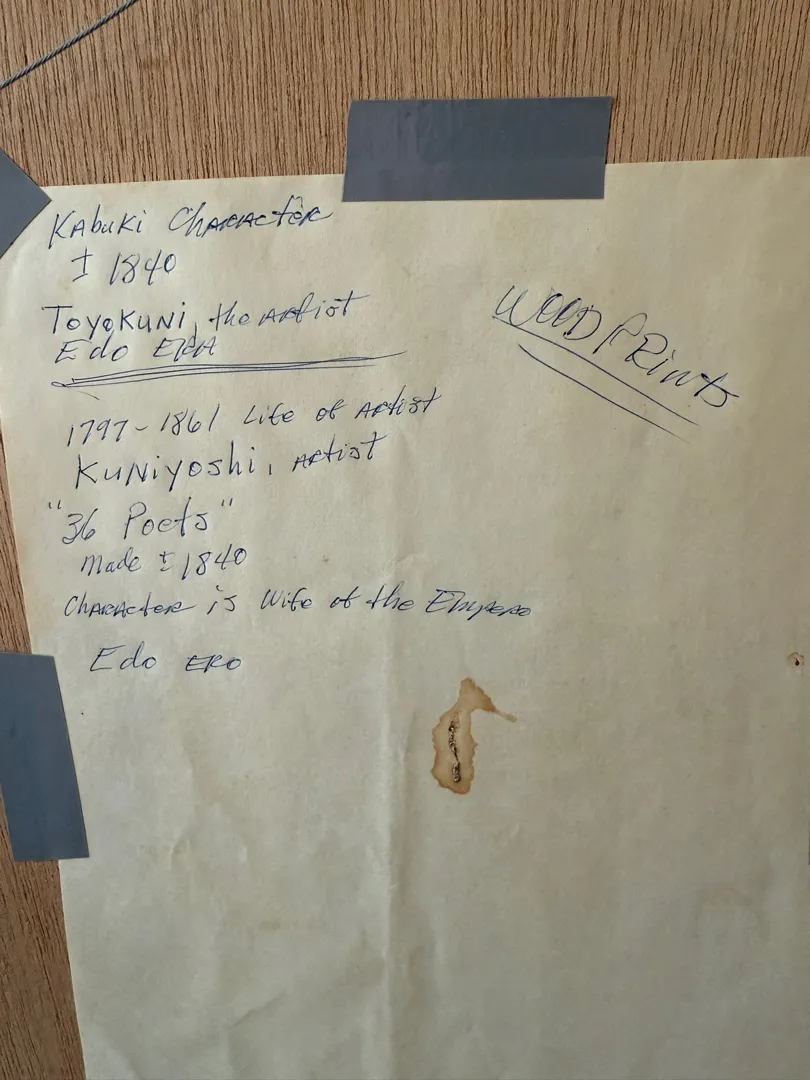 Kabuki Character
± 1840
Toyokuni, the Artist
Edo ERA
WOOD PRints
1797-1861 Life of Artist
Kuniyoshi, Artist
"36 Poets"
Made ± 1840
Character is Wife of the
Edo ERO